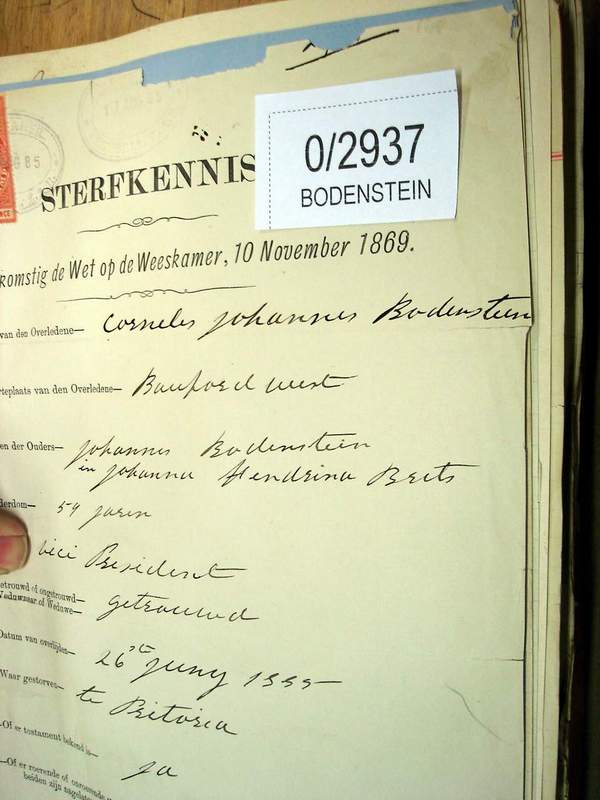 0/2937
BODENSTEIN
STERFKENNIS
komstig de Wet op de Weeskamer, 10 November 1869.
van den Overledene— Cornelis Johannes Bodenstein
rteplaats van den Overledene— Bauford west
en der Ouders— Johannes Bodenstein
en Johanna Hendrina Brits
derdom— 59 jaren
vici President
etrouwd of ongetrouwd—
Weduwnaar of Weduwe— getrouwd
Datum van overlijden— 26ste Juny 1885
Waar gestorven— te Pritoria
Of er testament bekend is— ja
—Of er roerende of onroerende
beiden zijn nagelaten